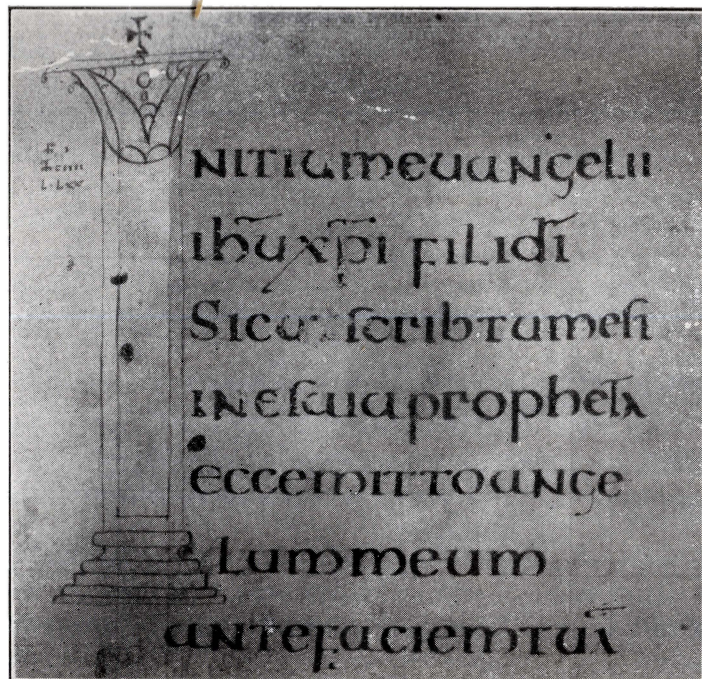 NITIUMEUANGELII
IHŪXP̄I FILIDĪ
SICUT SCRIBTUMEST
INESAIAPROPHETĀ
ECCEMITTOANGE
LUMMEUM
ANTEFACIEMTUĀ